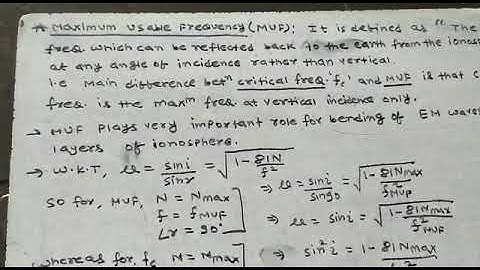 * Maximum Usable Frequency (MUF): It is defined as "The
freq which can be reflected back to the earth from the ionos
at any angle of incidence rather than vertical.
i.e Main difference betn critical freq 'fc' and MUF is that c
freq is the maxm freq at vertical incidence only.
→ MUF plays very important role for bending of EM wave
layers of ionosphere.
→ W.K.T, μ = sini/sinr = √(1 - 81N/f²)
so for, MUF, N = Nmax
f = fMUF
∠r = 90°
⇒ μ = sini/sin90 = √(1 - 81Nmax/f²MUF)
⇒ μ = sini = √(1 - 81Nmax/f²MUF)
⇒ sin²i = 1 - 81Nmax
whereas for, fc N = Nmax